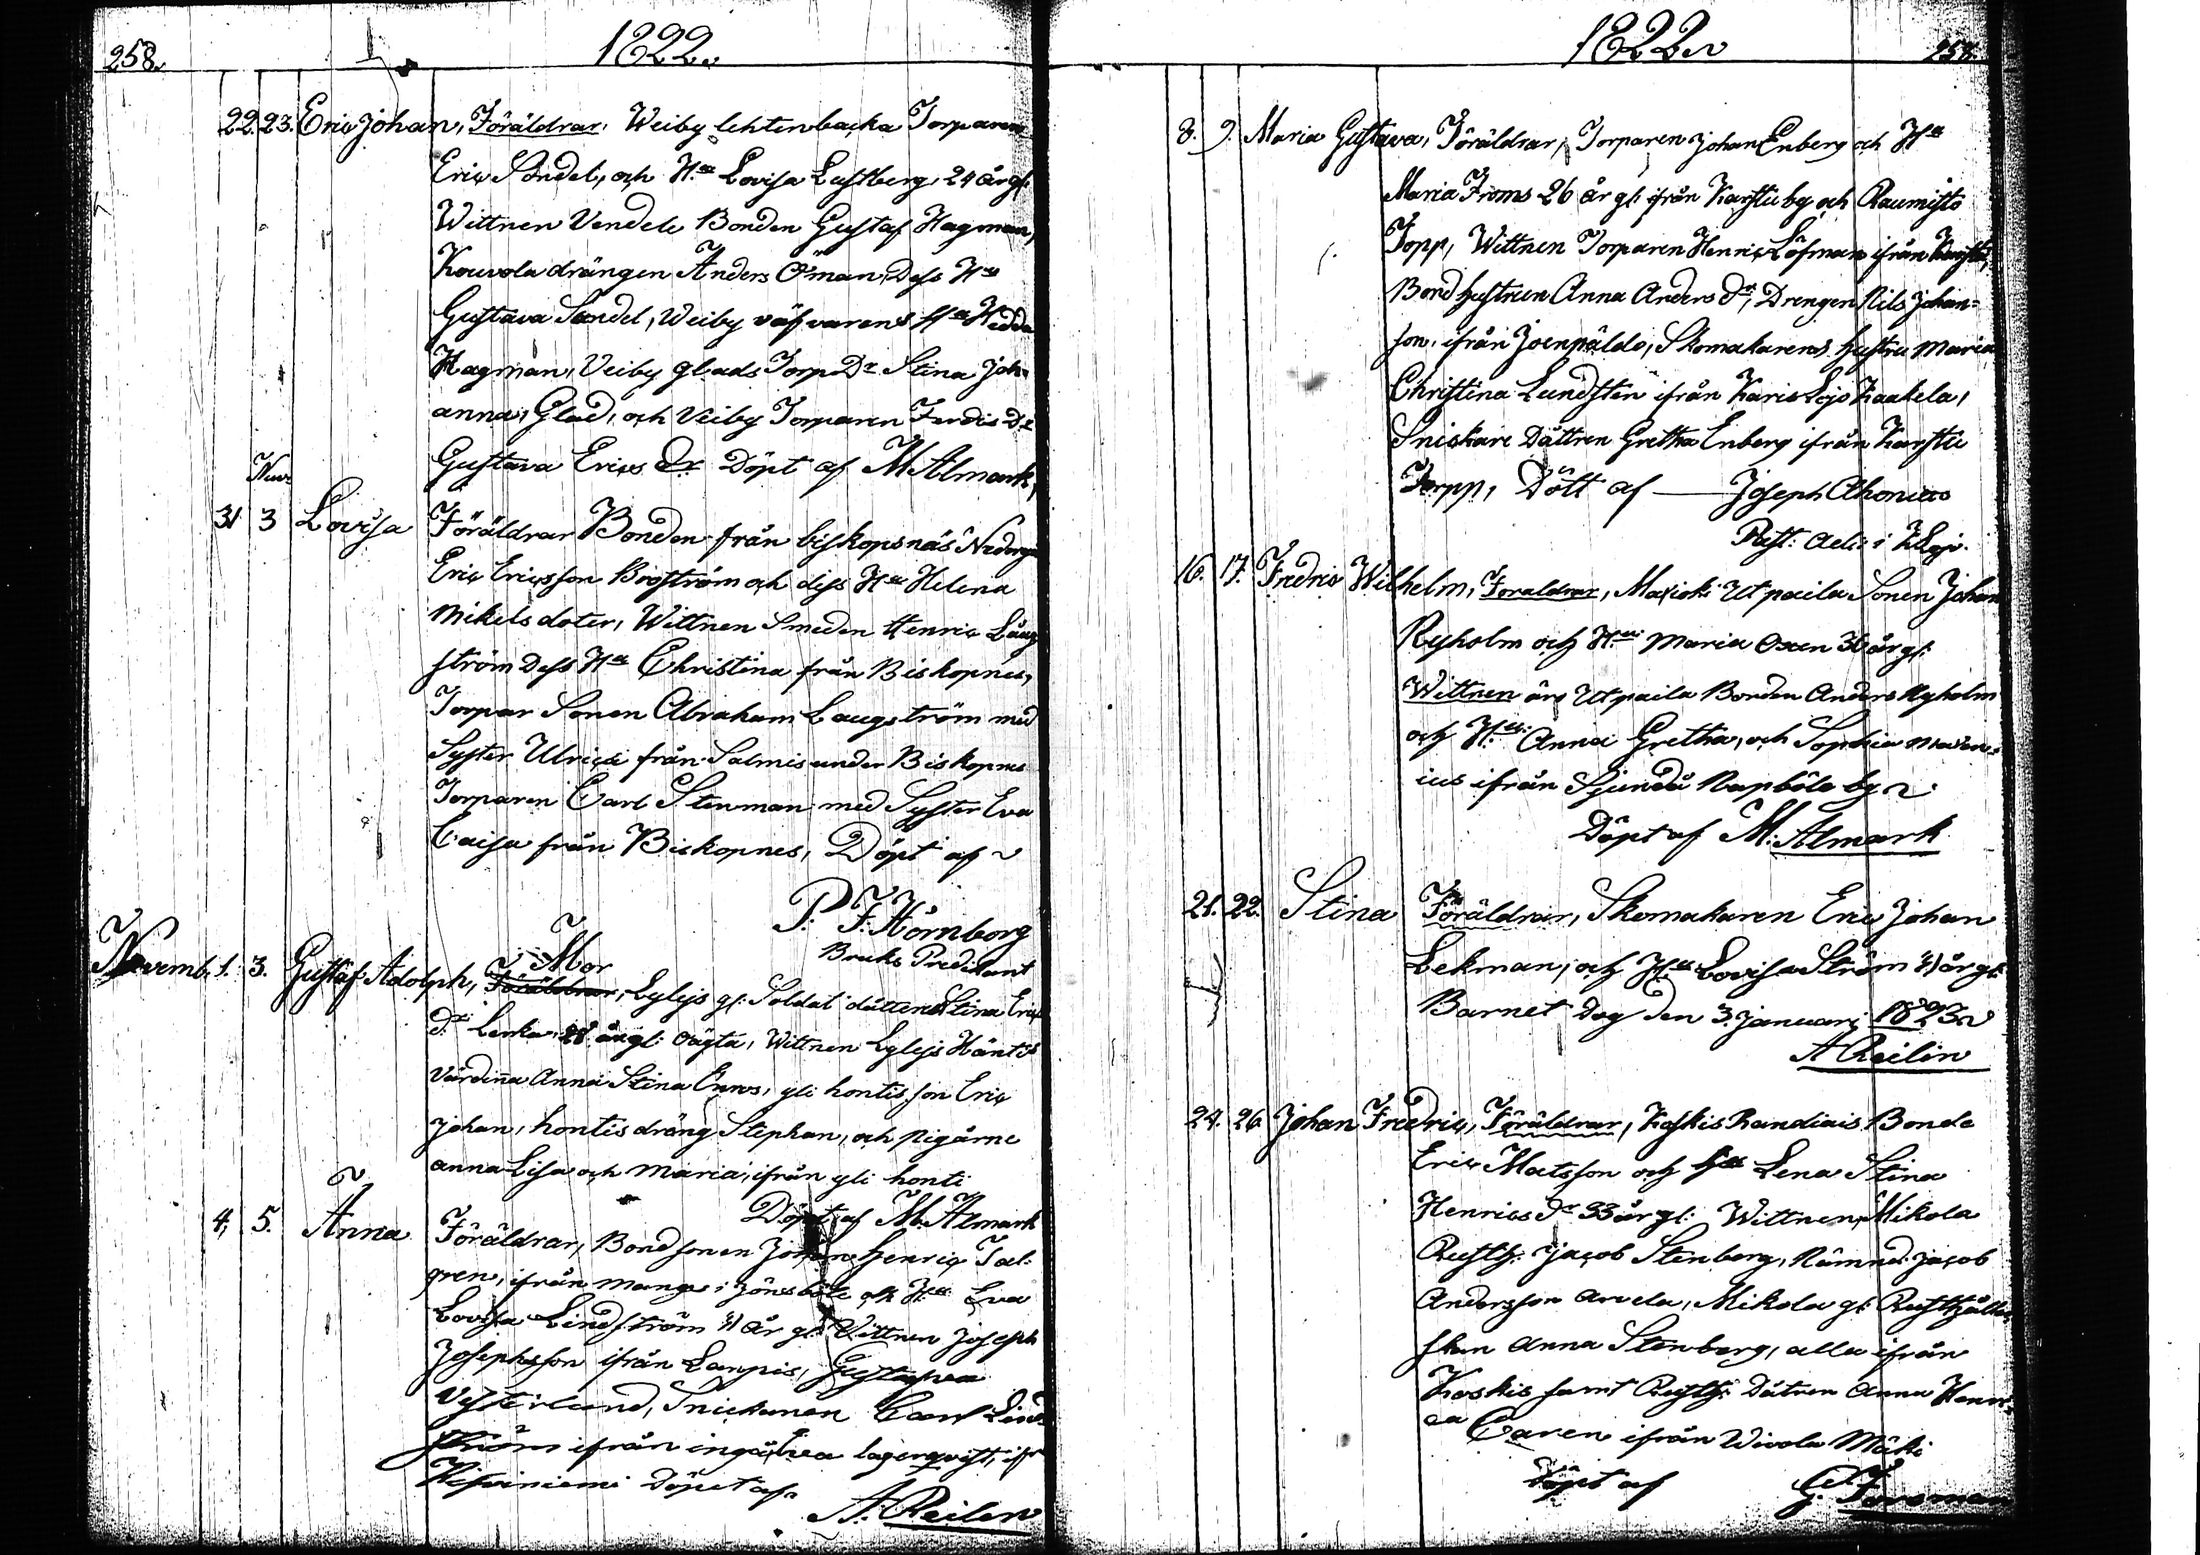 258.
1822.
22. 23. Eric Johan, Föräldrar, Weiby lehtenbacka Torparen
Eric Sondel, och H:u Lovisa Lustberg, 24 år gl:
Wittnen Vendele Bonden Gustaf Hagman,
Kouvola drängen Anders Öman, Dess H:u
Gustava Sondel, Weiby väfvarens H:u Hedda
Hagman, Veiby glads Torp Dr Stina Joh-
anna, Glad, och Veiby Torparen Ferdis Dr
Gustava Erics Dr Döpt af M Almark,
Nov:
31 3 Lovisa Föräldrar Bonden från biskopsnäs Nedergå
Eric Ericsson Boström och dess H:u Helena
Mikels doter, Wittnen Smeden Henric Laug
ström Dess H:u Christina från Biskopnes,
Torpar Sonen Abraham Laugström med
Syster Ulrica från Salmis under Biskopnes
Torparen Carl Stenman med Syster Eva
Caisa från Biskopnes, Döpt af
P. F. Hörnborg
Bruks Predikant
Mor
Novemb. 1. 3. Gustaf Adolph, Föräldrar, Lylyis gl: Soldat dåttren Stina Eric
Dr Lenka, 28 år gl: oägta, Wittnen Lylyis Häntis
Värdinna Anna Stina Enros, yli hontis son Eric
Johan, hontis dräng Stephan, och pigårne
anna Lisa och Maria, ifrån yli honti
Döpt af M. Almark
4, 5. Anna Föräldrar, Bondsonen Johan Henric Tal-
gren, ifrån Mangs i Jönsböle och H:u Eva
Lovisa Lindström år gl: Vittnen Joseph
Josephsson ifrån Lanpis, Gustafva
Vesterlund, Snickaren Carl Lind
ström ifrån ingå, lagerqvist, ifr
Döpet af
A. Reilen
1822
258.
8. 9. Maria Gustava, Föräldrar, Torparen Johan Enberg och H:u
Maria Froms 26 år gl: ifrån Karstu by och Raumisto
Torp, Wittnen Torparen Henric Löfman ifrån Karstu,
Bond hustrun Anna Anders dr, Drengen Nils Johan-
son, ifrån Joenpäldo, Skomakarens hustru Maria
Christina Lundsten ifrån Karis Lojo Kaakela,
Sniskare Dåttren Gretha Enberg ifrån Karstu
Torpp, Dött af Joseph Ahonius
Past: Adi: i K Lojo.
16. 17. Fredric Wilhelm, Föräldrar, Maxioki Utpaila Sonen Johan
Ryholm och H:u Maria Oxen 30 år gl:
Wittnen äro Utpaila Bonden Anders Ryholm
och H:u Anna Gretha, och Sophia
ius ifrån Sjundå Napböle by
Döpt af M: Almark
21. 22. Stina Föräldrar, Skomakaren Eric Johan
Lekman, och H:u Lovisa Ström år gl:
Barnet Dog den 3. Januari 1823
A Reilin
24. 26. Johan Fredric, Föräldrar, Koskis Randiais Bonde
Eric Matsson och H:u Lena Stina
Henrics dr 33 år gl: Wittnen, Mikola
Rusth: Jacob Stenberg, Nämnd: Jacob
Andersson Arvela, Mikola gl: Rusthålla-
skan Anna Stenberg, alla ifrån
Koskis samt Rusth: Dåtren Anna Henri-
ca Caren ifrån Wivola Mäki
Döpt af G. Forsman